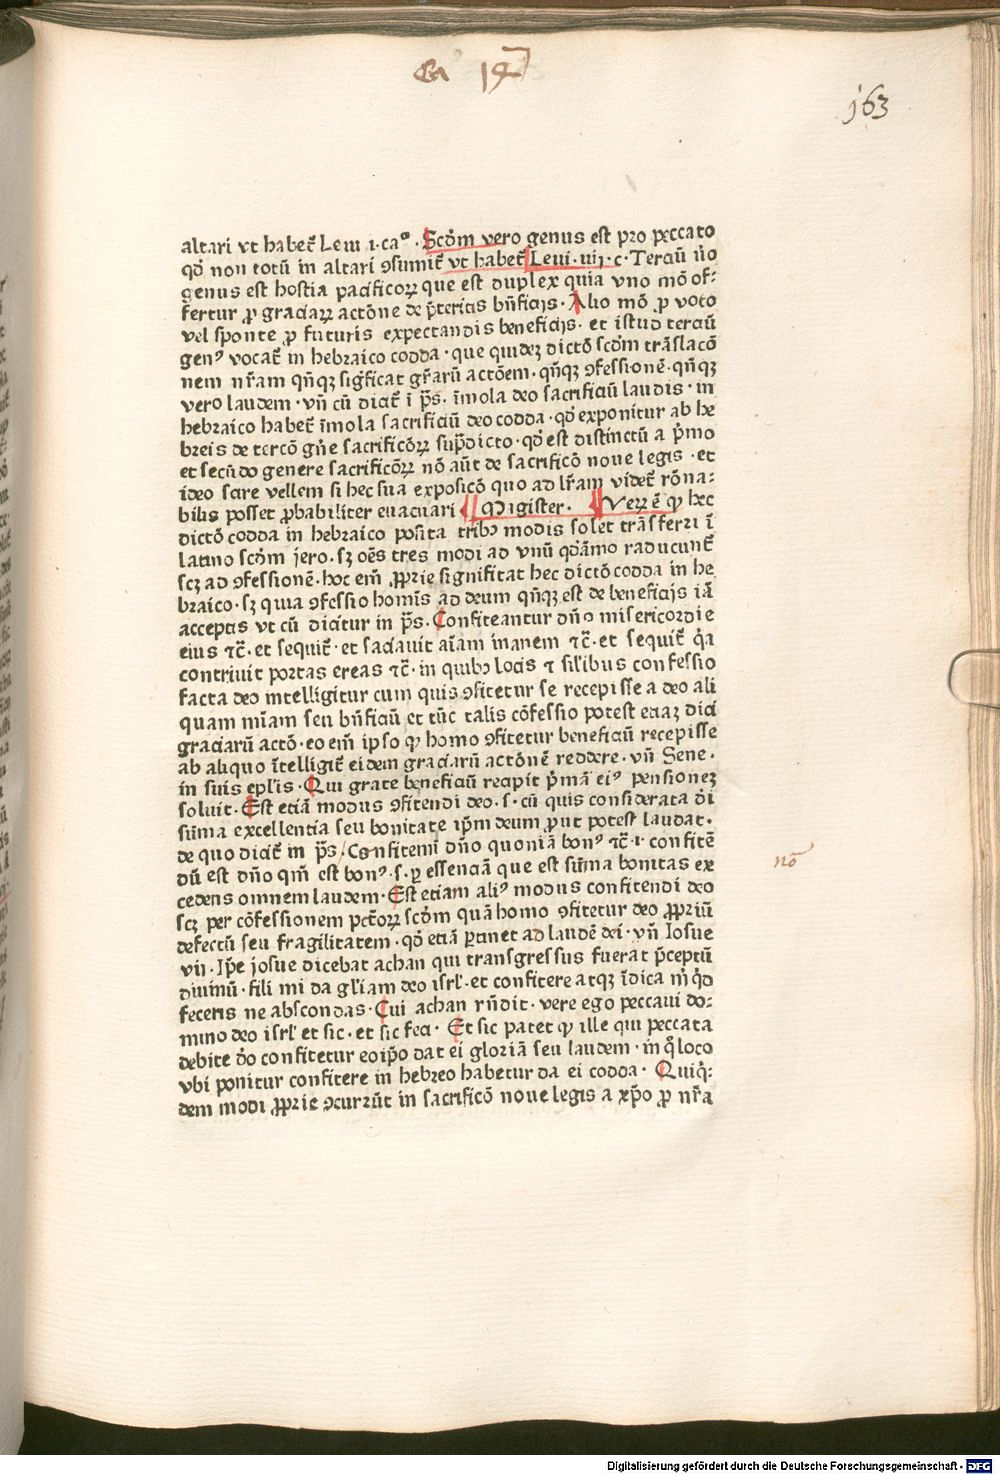 Ca 19
163
altari vt habet᷑ Leui ı·caº· Scd̓m vero genus est pro peccato
qd̓ non totū in altari ꝯsumit᷑ vt habet᷑ Leui·iiij·c·Terciū v̓o
genus est hostia pacificoꝝ que est duplex quia vno mō of⸗
fertur ꝓ graciaꝝ actōne de p̄teritis bn̄ficijs· Alio mō ꝓ voto
vel sponte ꝓ futuris expectandis beneficijs· et istud terciū
genꝰ vocat᷑ in hebraico codda·que quidez dictō scd̓m trāslacō
nem nr̄am qn̄qꝫ sig̓ficat gr̄arū actōem·qn̄qꝫ ꝯfessionē·qn̄qꝫ
vero laudem·vn̄ cū dicit᷑ ī p̄s· īmola deo sacrificiū laudis·in
hebraico habet᷑ īmola sacrificiū deo codda·qd̓ exponitur ab he
breis de tercō gn̄e sacrificōꝝ sup̄dicto·qd̓ est distinctū a p̓mo
et secūdo genere sacrificōꝝ nō aūt de sacrificō noue legis·et
ideo scire vellem si hec sua exposicō quo ad lr̄am videt᷑ rōna⸗
bilis posset ꝓbabiliter euacuari Magister· Veꝝ ē ꝙ hec
dictō codda in hebraico posita tribꝰ modis solet trāsferri ī
latino scd̓m jero·sꝫ oēs tres modi ad vnū qd̓āmo raducunt᷑
scꝫ ad ꝯfessionē·hoc em̄ ꝓprie significat hec dictō codda in he
braico·sꝫ quia ꝯfessio homīs ad deum qn̄qꝫ est de beneficijs iā
acceptis vt cū dicitur in p̄s·Confiteantur dn̄o misericordie
eius ⁊c̄·et sequit᷑·et saciauit aīam inanem ⁊c̄·et sequit᷑ q̓a
contriuit portas ereas ⁊c̄·in quibꝰ locis ⁊ sil̓ibus confessio
facta deo intelligitur cum quis ꝯfitetur se recepisse a deo ali
quam mīam seu bn̄ficiū et tūc talis cōfessio potest eciaz dici
graciarū actō·eo em̄ ipso ꝙ homo ꝯfitetur beneficiū recepisse
ab aliquo ītelligit᷑ eidem graciarū actōnē reddere·vn̄ Sene·
in suis epl̓is·Qui grate beneficiū recipit p̓mā eiꝰ pensionez
soluit·Est etiā modus ꝯfitendi deo·s·cū quis considerata di
sūma excellentia seu bonitate ip̄m deum ꝓut potest laudat·
de quo dicit᷑ in p̄s/Confitemī dn̄o quoniā bonꝰ ⁊c̄·i·confitē
dū est dn̄o qm̄ est bonꝰ·s·ꝑ essenciā que est sūma bonitas ex
cedens omnem laudem·Est etiam aliꝰ modus confitendi deo
scꝫ per cōfessionem pctōꝝ scd̓m quā homo ꝯfitetur deo ꝓpriū
defectū seu fragilitatem·qd̓ etiā ꝑtinet ad laudē dei·vn̄ Iosue
vij·Ip̄e josue dicebat achan qui transgressus fuerat p̄ceptū
diuinū·fili mi da gl̓iam deo isrl̓·et confitere atqꝫ īdica m̓ qd̓
feceris ne abscondas·Cui achan rn̄dit·vere ego peccaui do⸗
mino deo isrl̓ et sic·et sic feci· Et sic patet ꝙ ille qui peccata
debite d̓o confitetur eoip̄o dat ei gloriā seu laudem·in q̓ loco
vbi ponitur confitere in hebreo habetur da ei codda· Quiq̓⸗
dem modi ꝓprie ꝯcurrūt in sacrificō noue legis a xp̄o ꝓ nr̄a
nō
Digitalisierung gefördert durch die Deutsche Forschungsgemeinschaft - DFG